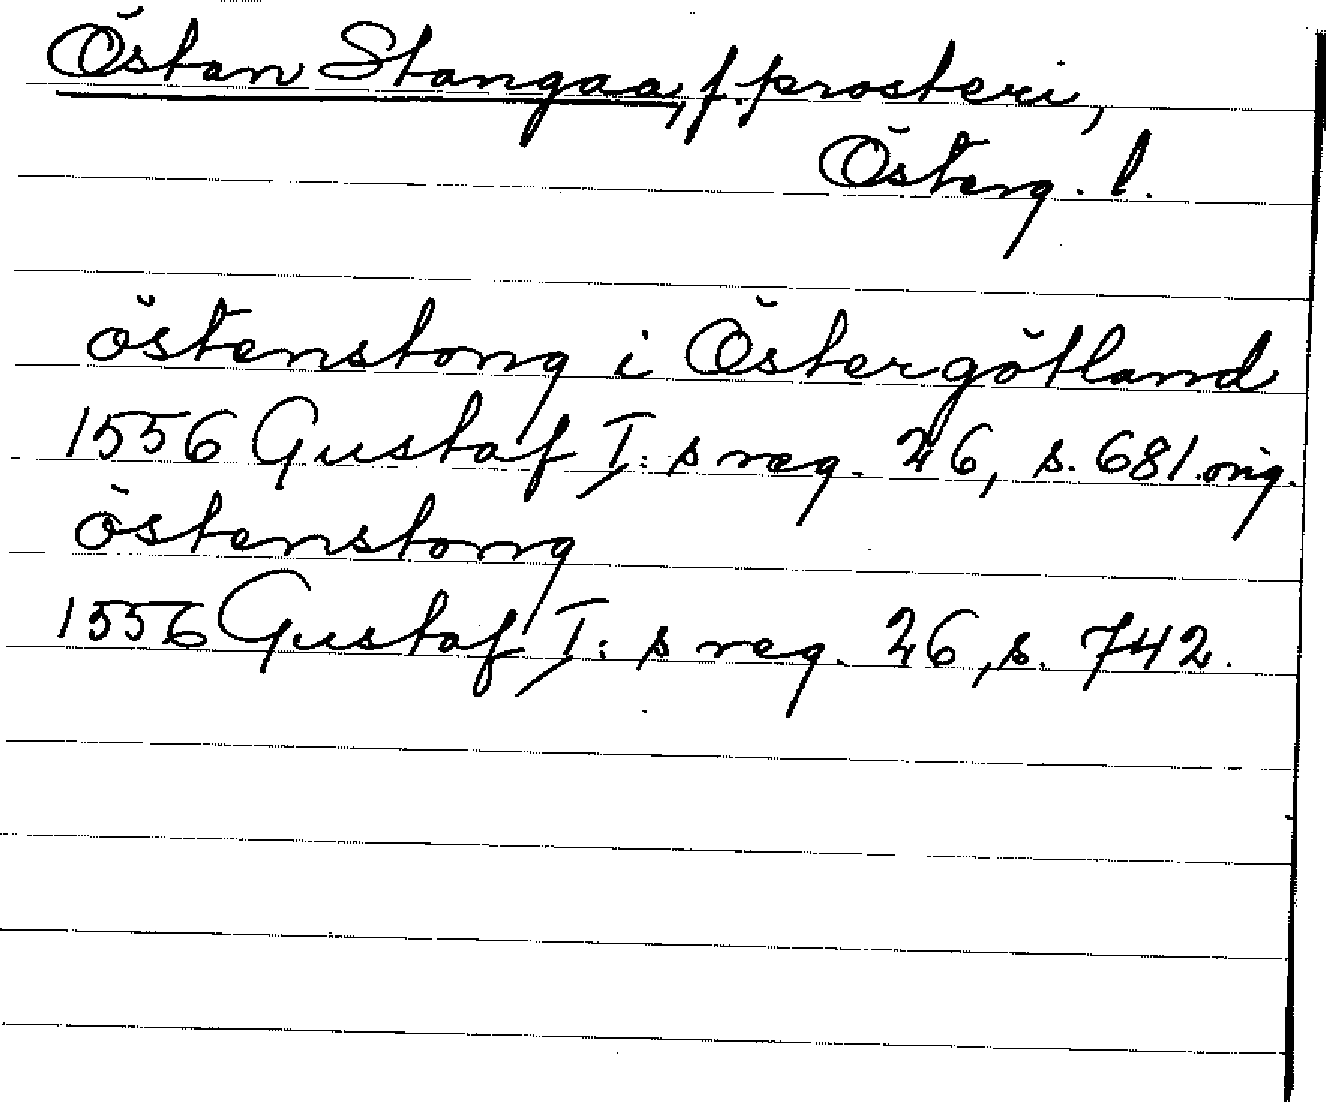 Östan Stangaa, f. prosteri,
Österg. l.
östenstong i Östergötland
1556 Gustaf I:s reg. 26, s. 681. orig.
östenstong
1556 Gustaf I:s reg. 26, s. 742.